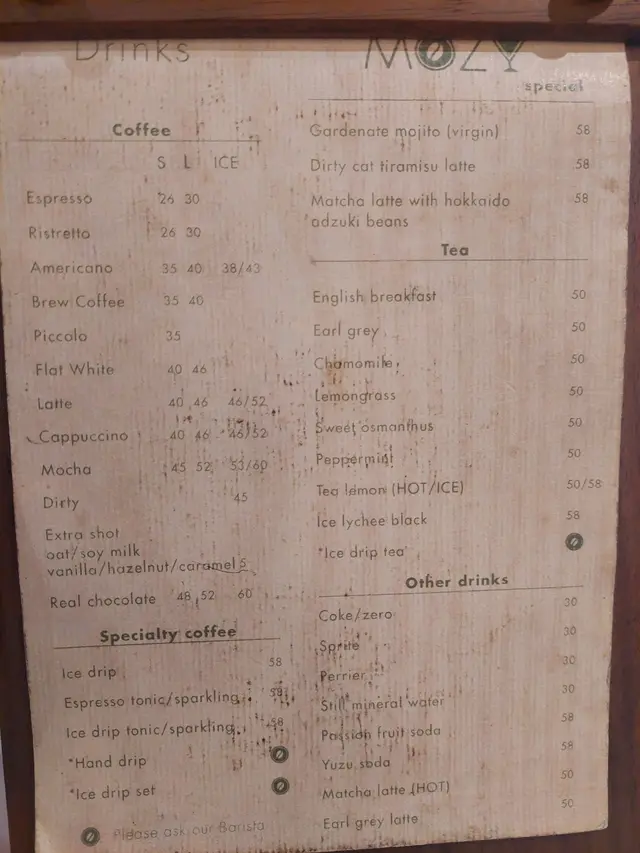 Drinks
MOZY
Coffee
S L ICE
Espresso 26 30
Ristretto 26 30
Americano 35 40 38/43
Brew Coffee 35 40
Piccolo 35
Flat White 40 46
Latte 40 46 46/52
Cappuccino 40 46 46/52
Mocha 45 52 53/60
Dirty 45
Extra shot
oat/soy milk
vanilla/hazelnut/caramel 5
Real chocolate 48 52 60
Specialty coffee
Ice drip 58
Espresso tonic/sparkling 58
Ice drip tonic/sparkling 58
*Hand drip
*Ice drip set
Please ask our Barista
special
Gardenate mojito (virgin) 58
Dirty cat tiramisu latte 58
Matcha latte with hokkaido 58
adzuki beans
Tea
English breakfast 50
Earl grey 50
Chamomile 50
Lemongrass 50
Sweet osmanthus 50
Peppermint 50
Tea lemon (HOT/ICE) 50/58
Ice lychee black 58
*Ice drip tea
Other drinks
Coke/zero 30
Sprite 30
Perrier 30
Still mineral water 30
Passion fruit soda 58
Yuzu soda 58
Matcha latte (HOT) 50
Earl grey latte 50